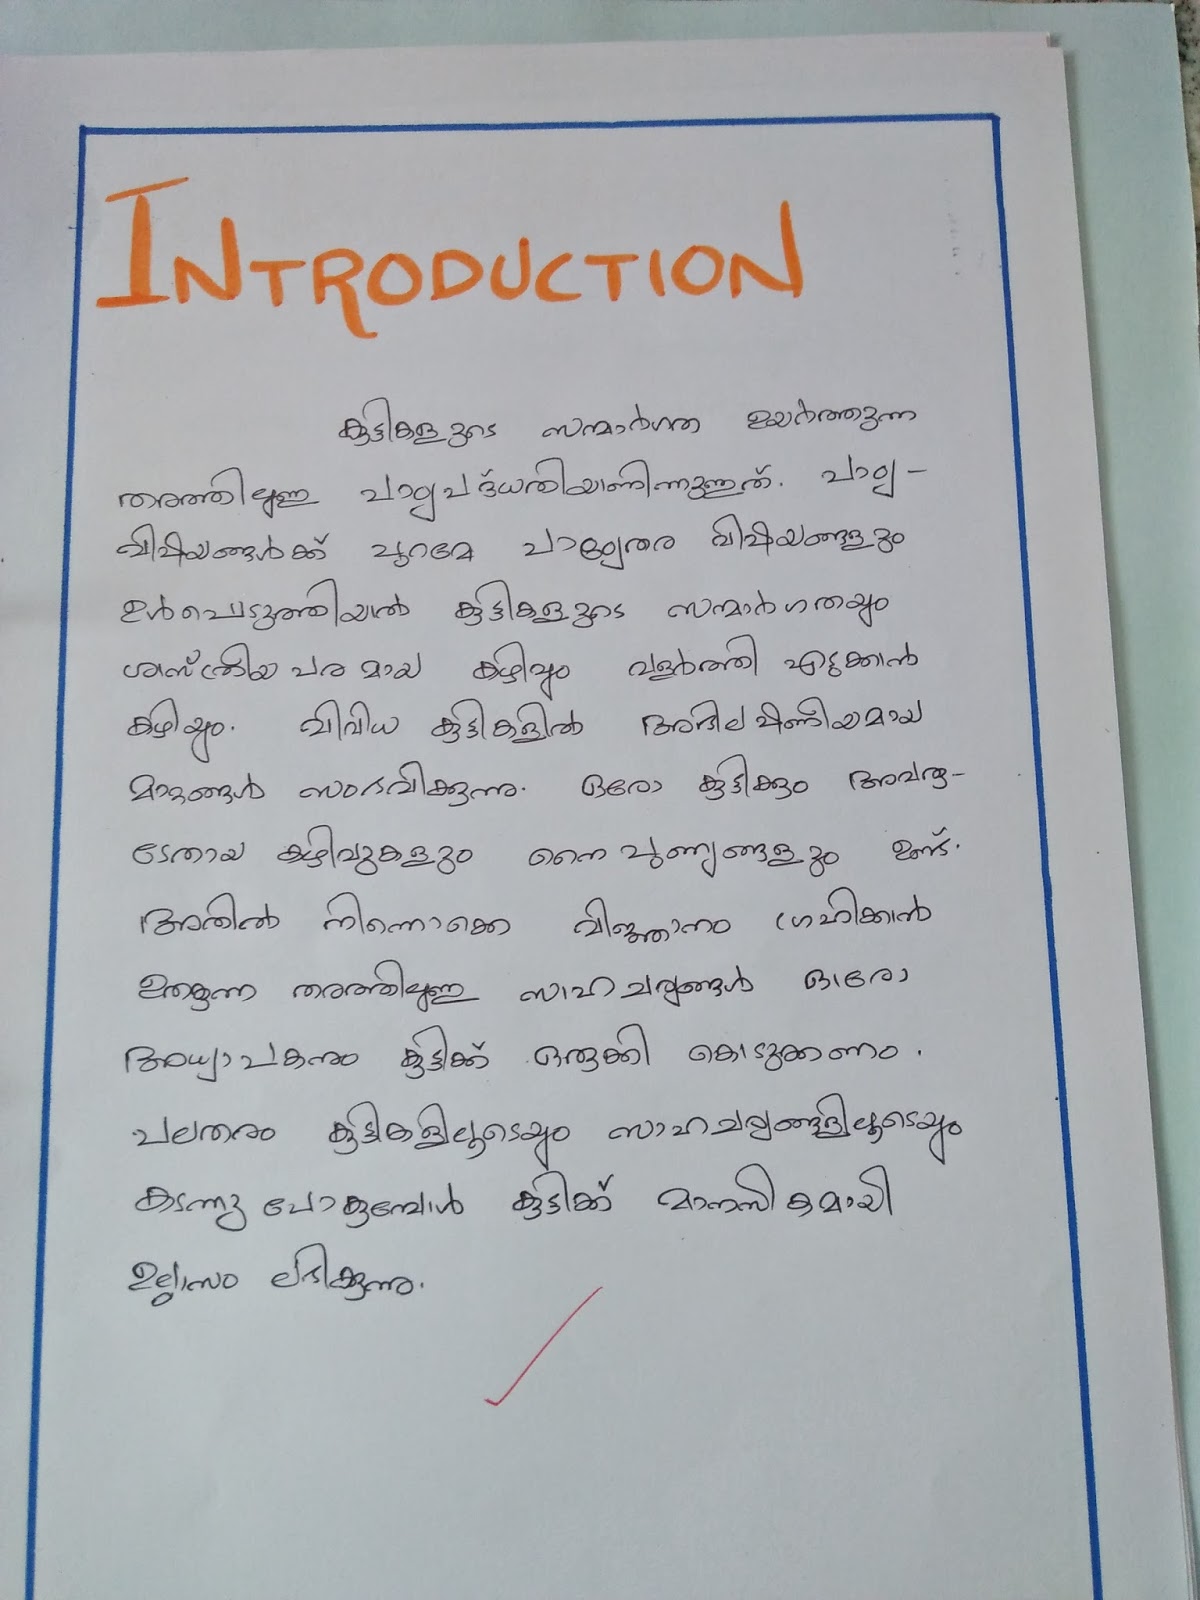 INTRODUCTION
കുട്ടികളുടെ സന്മാർഗത ഉയർത്തുന്ന
തരത്തിലുള്ള പാഠ്യപദ്ധതിയാണിന്നുള്ളത്. പാഠ്യ-
വിഷയങ്ങൾക്ക് പുറമേ പാഠ്യേതര വിഷയങ്ങളും
ഉൾപെടുത്തിയാൽ കുട്ടികളുടെ സന്മാർഗതയും
ശാസ്ത്രീയപരമായ കഴിവും വളർത്തി എടുക്കാൻ
കഴിയും. വിവിധ കുട്ടികളിൽ അഭിലഷണീയമായ
മാറ്റങ്ങൾ സംഭവിക്കുന്നു. ഒരോ കുട്ടിക്കും അവരു-
ടേതായ കഴിവുകളും നൈപുണ്യങ്ങളും ഉണ്ട്.
അതിൽ നിന്നൊക്കെ വിജ്ഞാനം ഗ്രഹിക്കാൻ
ഉതകുന്ന തരത്തിലുള്ള സാഹചര്യങ്ങൾ ഓരോ
അധ്യാപകനും കുട്ടിക്ക് ഒരുക്കി കൊടുക്കണം.
പലതരം കുട്ടികളിലൂടെയും സാഹചര്യങ്ങളിലൂടെയും
കടന്നു പോകുമ്പോൾ കുട്ടിക്ക് മാനസികമായി
ഉല്ലാസം ലഭിക്കുന്നു.